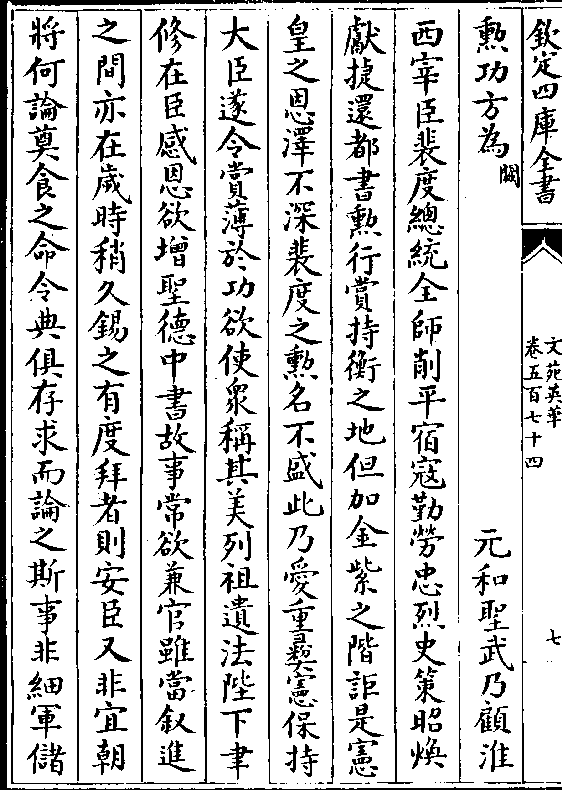 欽定四庫全書
文苑英華
卷五百七十四
七
勲功方為闕元和聖武乃顧淮
西宰臣裴度總統全師削平宿寇勤勞忠烈史策昭煥
獻捷還都書勲行賞持衡之地但加金紫之階詎是憲
皇之恩澤不深裴度之勲名不盛此乃愛重彞憲保持
大臣遂令賞薄於功欲使衆稱其美列祖遺法陛下聿
修在臣感恩欲增聖德中書故事常欲兼官雖當叙進
之間亦在歲時稍久錫之有度拜者則安臣又非宜朝
將何論奠食之命令典俱存求而論之斯事非細軍儲